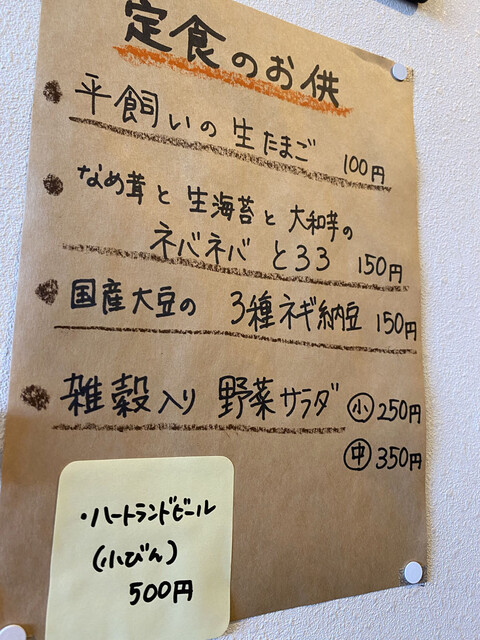 定食のお供
● 平飼いの生たまご 100円
● なめ茸と生海苔と大和芋の
ネバネバとろろ 150円
● 国産大豆の 3種ネギ納豆 150円
● 雑穀入り 野菜サラダ ㊙小 250円
㊥ 350円
・ハートランドビール
(小びん)
500円